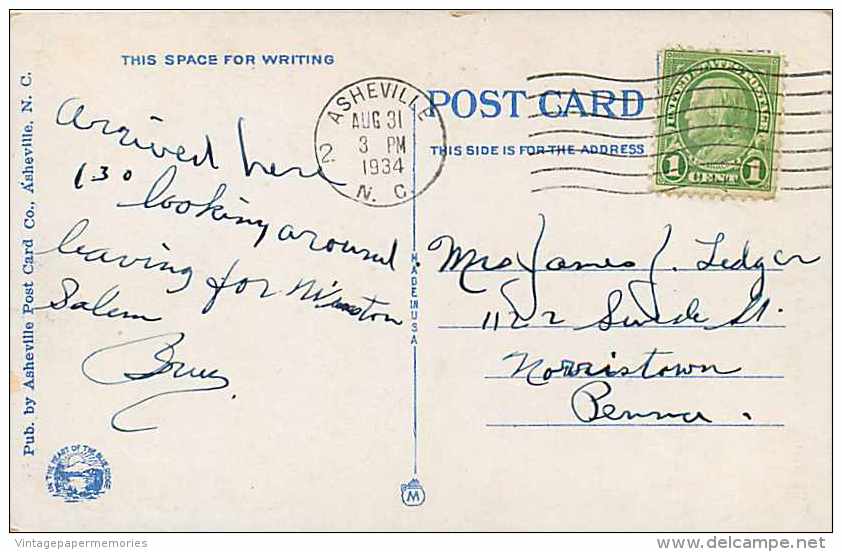 THIS SPACE FOR WRITING
Arrived here
1 30 looking around
leaving for Winston
Salem
Pub. by Asheville Post Card Co., Asheville, N. C.
IN THE HEART OF THE BLUE RIDGE
ASHEVILLE
AUG 31
3 PM
1934
N. C.
2
POST CARD
THIS SIDE IS FOR THE ADDRESS
1 CENT 1
MADE IN USA
M
Mrs James J. Ledger
1122 Swede St.
Norristown
Penna.
Vintagepapermemories
delcampe.net